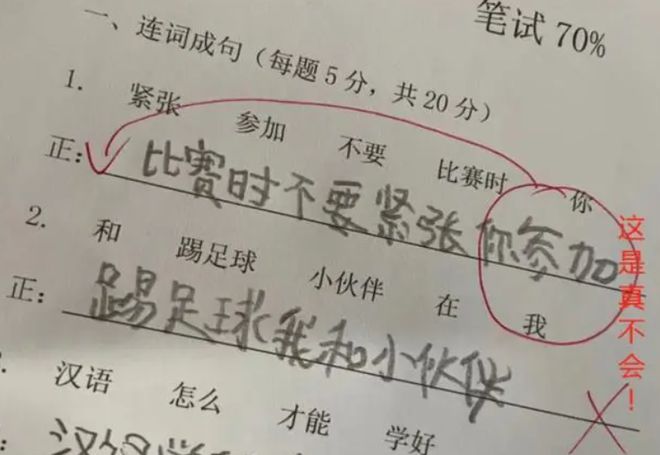 笔试 70%
一、连词成句（每题 5 分，共 20 分）
1. 紧张 参加 不要 比赛时 你
正: 比赛时不要紧张你参加
2. 和 踢足球 小伙伴 在 我
正: 踢足球我和小伙伴
汉语 怎么 才能 学好
这是真不会！